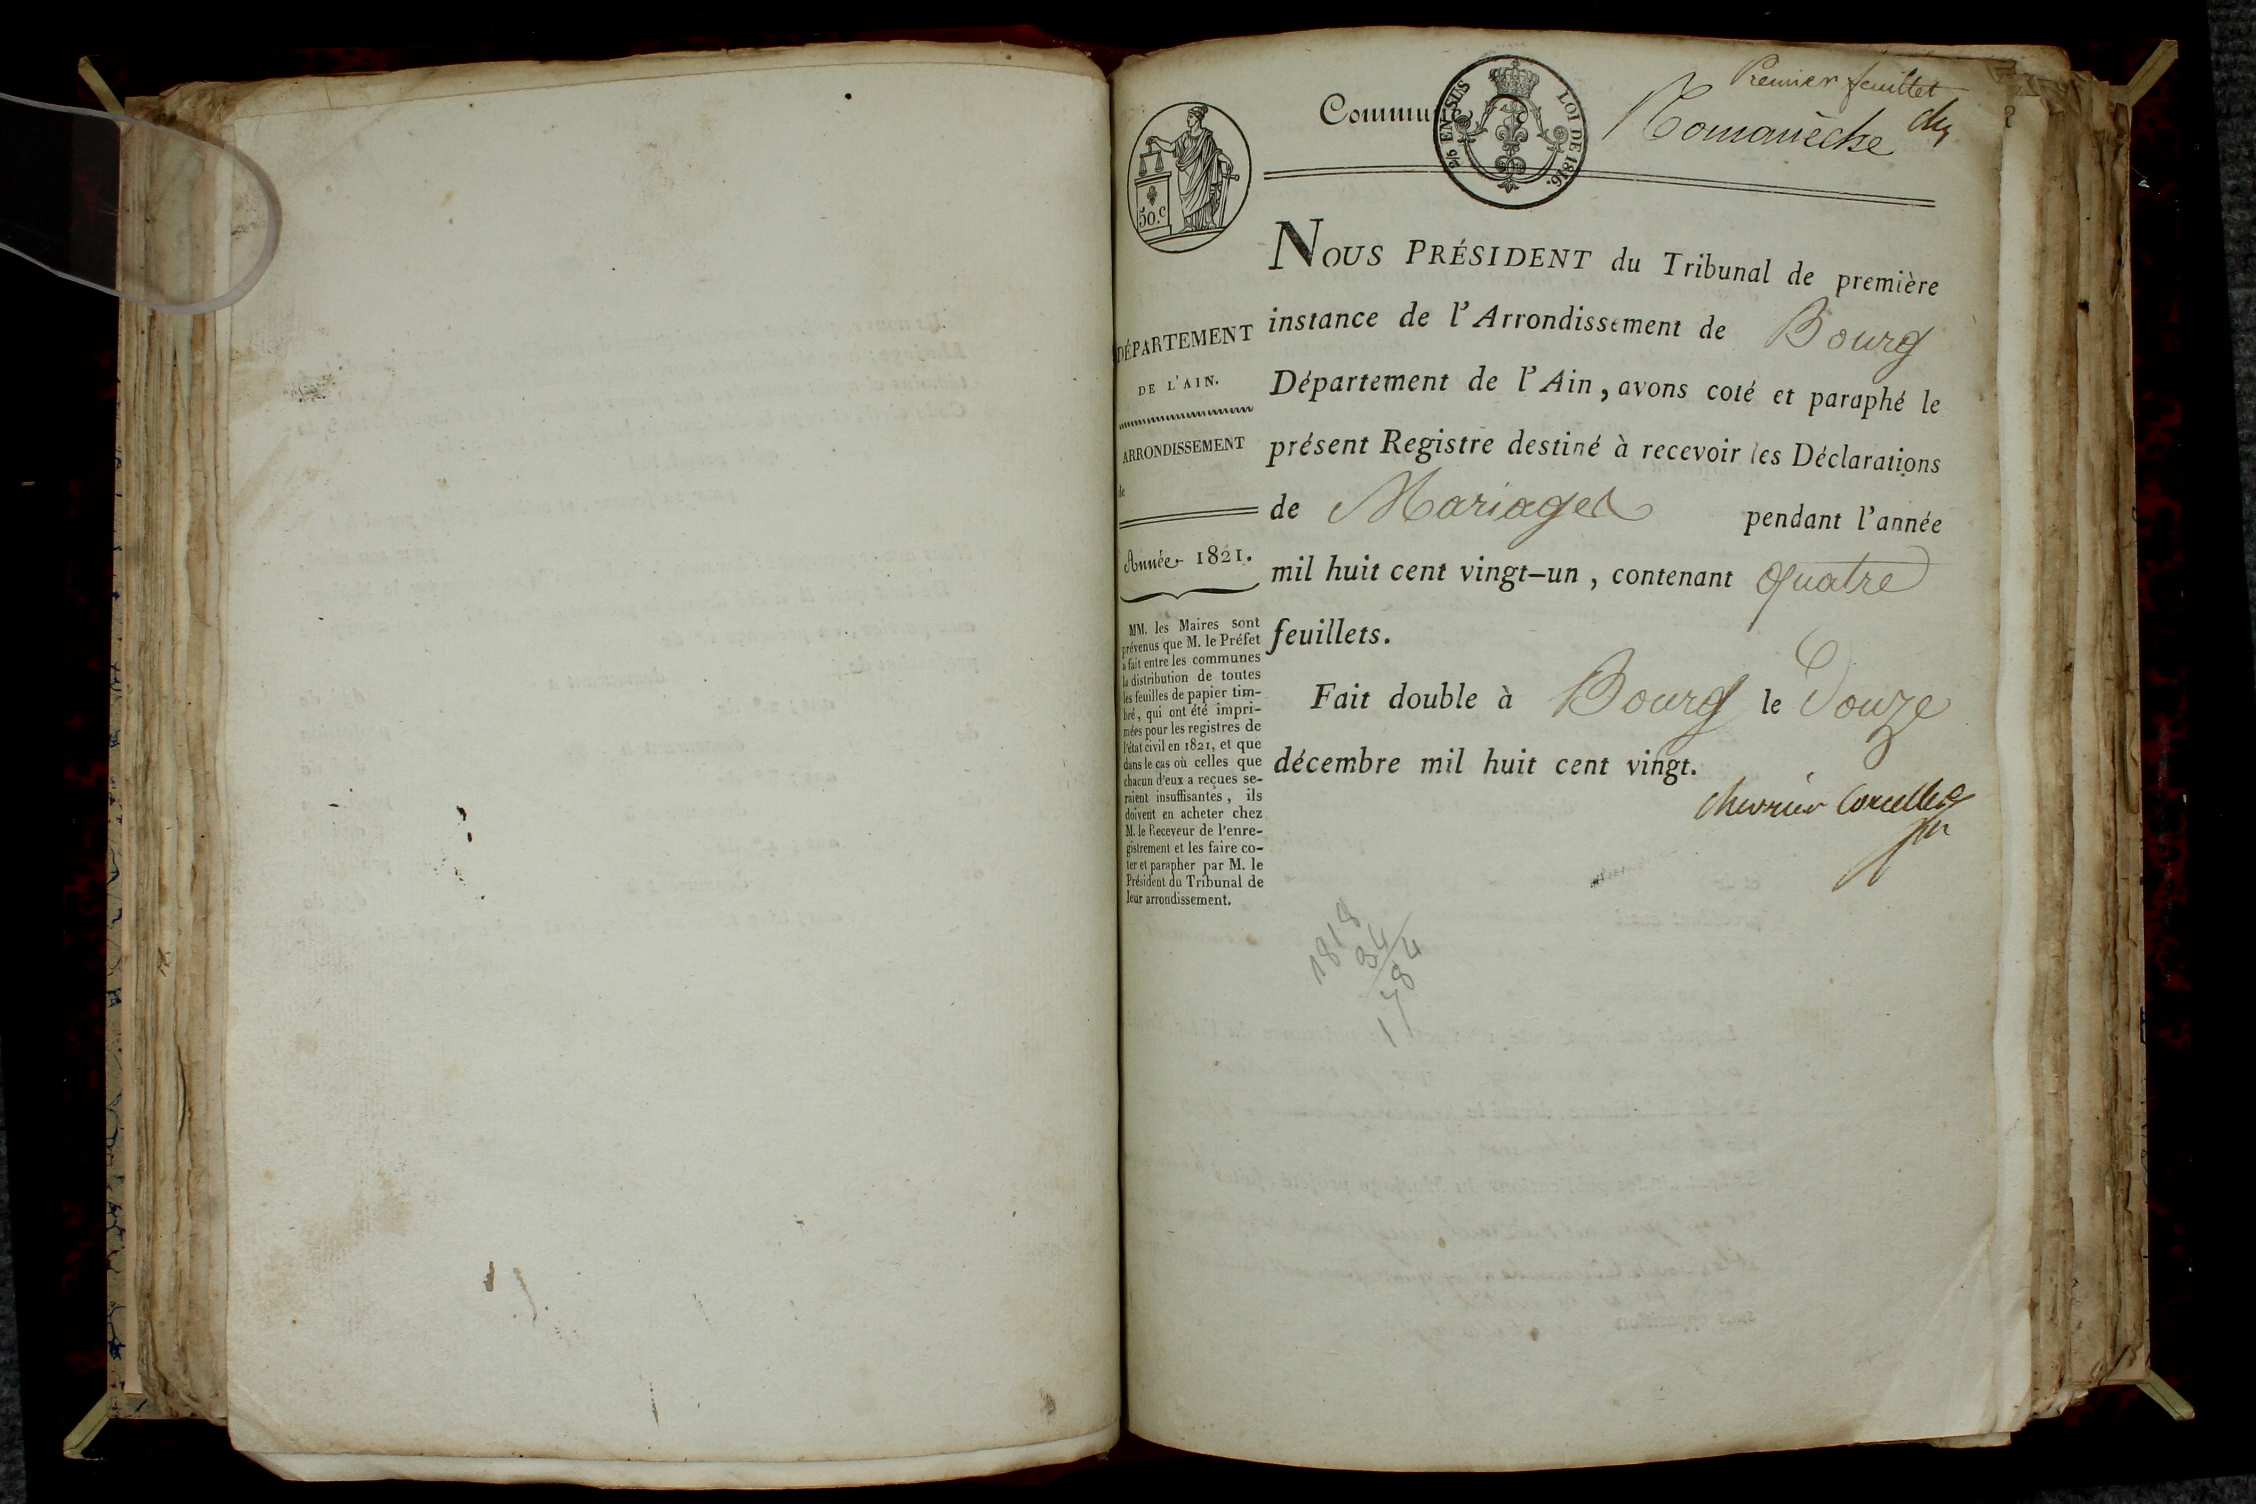 Premier feuillet
Commune
2/6 EN SUS LOI DE 1816.
Romanèche
50.c
NOUS PRÉSIDENT du Tribunal de première
instance de l'Arrondissement de Bourg
Département de l'Ain, avons coté et paraphé le
présent Registre destiné à recevoir les Déclarations
de Mariages pendant l'année
mil huit cent vingt-un, contenant quatre
feuillets.
Fait double à Bourg le Douze
décembre mil huit cent vingt.
chevrier Corcelles
DÉPARTEMENT
DE L'AIN.
ARRONDISSEMENT
de
Année 1821.
MM. les Maires sont
prévenus que M. le Préfet
a fait entre les communes
la distribution de toutes
les feuilles de papier tim-
bré, qui ont été impri-
mées pour les registres de
l'état civil en 1821, et que
dans le cas où celles que
chacun d'eux a reçues se-
raient insuffisantes, ils
doivent en acheter chez
M. le Receveur de l'enre-
gistrement et les faire co-
ter et parapher par M. le
Président du Tribunal de
leur arrondissement.
1818
34
1784